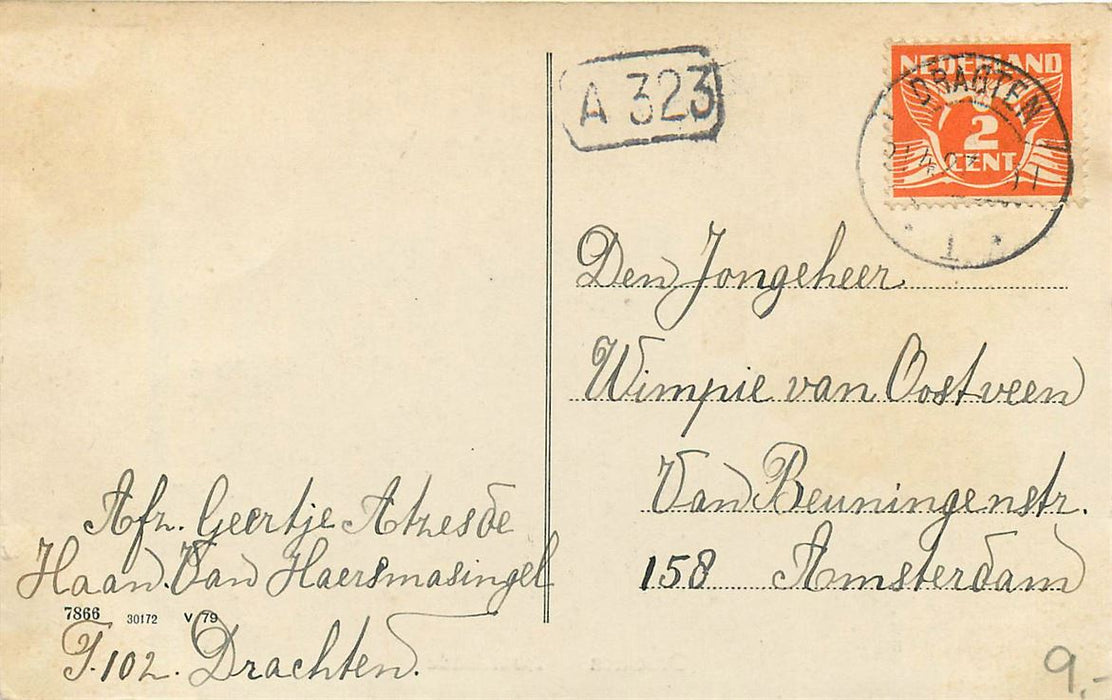 A 323
NEDERLAND
2
CENT
DRAGTEN
1
Den Jongeheer
Wimpie van Oostveen
Van Beuningenstr.
158 Amsterdam
Afz. Geertje Atzesde
Haan. Van Haersmasingel
7866 30172 V 79
T.102. Drachten.
9.-